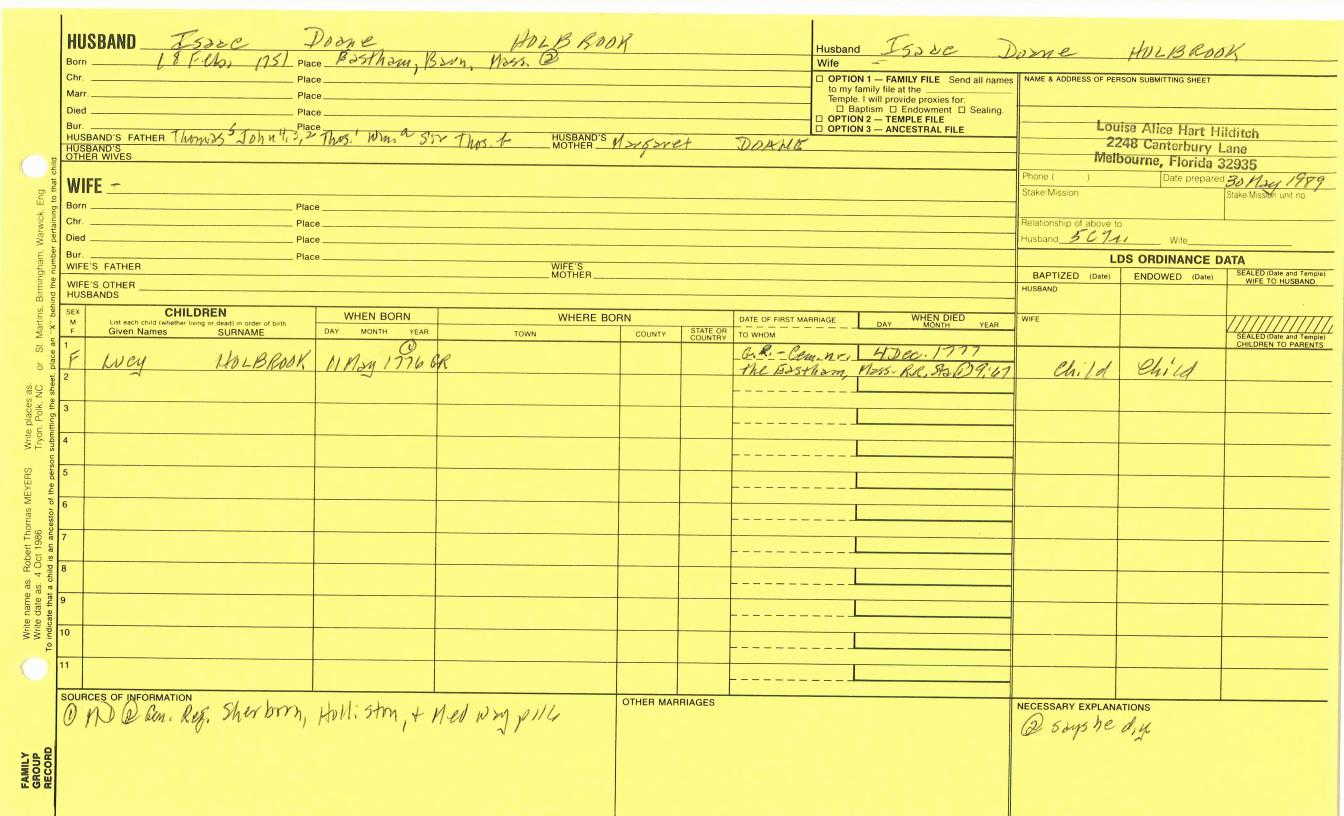 HUSBAND Isaac Doane HOLBROOK
Born 18 Feb. 1751 Place Eastham, Barn. Mass. ②
Chr. Place
Marr. Place
Died Place
Bur. Place
HUSBAND'S FATHER Thomas⁵ John⁴,³,² Thos.¹ Wm.ᵃ Sir Thos. HUSBAND'S MOTHER Margaret DOANE
HUSBAND'S OTHER WIVES
Husband Isaac Doane HOLBROOK
Wife –
☐ OPTION 1 — FAMILY FILE Send all names
to my family file at the
Temple. I will provide proxies for:
☐ Baptism ☐ Endowment ☐ Sealing.
☐ OPTION 2 — TEMPLE FILE
☐ OPTION 3 — ANCESTRAL FILE
NAME & ADDRESS OF PERSON SUBMITTING SHEET
Louise Alice Hart Hilditch
2248 Canterbury Lane
Melbourne, Florida 32935
Phone ( ) Date prepared 30 May 1989
Stake/Mission Stake/Mission unit no.
Relationship of above to
Husband Wife
WIFE –
Born Place
Chr. Place
Died Place
Bur. Place
WIFE'S FATHER WIFE'S MOTHER
WIFE'S OTHER HUSBANDS
LDS ORDINANCE DATA
BAPTIZED (Date) ENDOWED (Date) SEALED (Date and Temple) WIFE TO HUSBAND
HUSBAND
WIFE
SEALED (Date and Temple) CHILDREN TO PARENTS
SEX M F
CHILDREN
List each child (whether living or dead) in order of birth
Given Names SURNAME
WHEN BORN
DAY MONTH YEAR
WHERE BORN
TOWN COUNTY STATE OR COUNTRY
DATE OF FIRST MARRIAGE
TO WHOM
WHEN DIED
DAY MONTH YEAR
1 F Lucy HOLBROOK 11 May 1776 GR G.R.-Cem. nr. 4 Dec. 1777
the Eastham, Mass. R.R. Sta ① 9:67 Child Child
2
3
4
5
6
7
8
9
10
11
SOURCES OF INFORMATION
① MD ② Gen. Reg. Sherborn, Holliston, + Medway p116
OTHER MARRIAGES
NECESSARY EXPLANATIONS
② says he d.y
FAMILY GROUP RECORD
Write name as: Robert Thomas MEYERS Write places as: Tryon, Polk, NC or St. Martins, Birmingham, Warwick, Eng
Write date as: 4 Oct 1986
To indicate that a child is an ancestor of the person submitting the sheet, place an "X" behind the number pertaining to that child